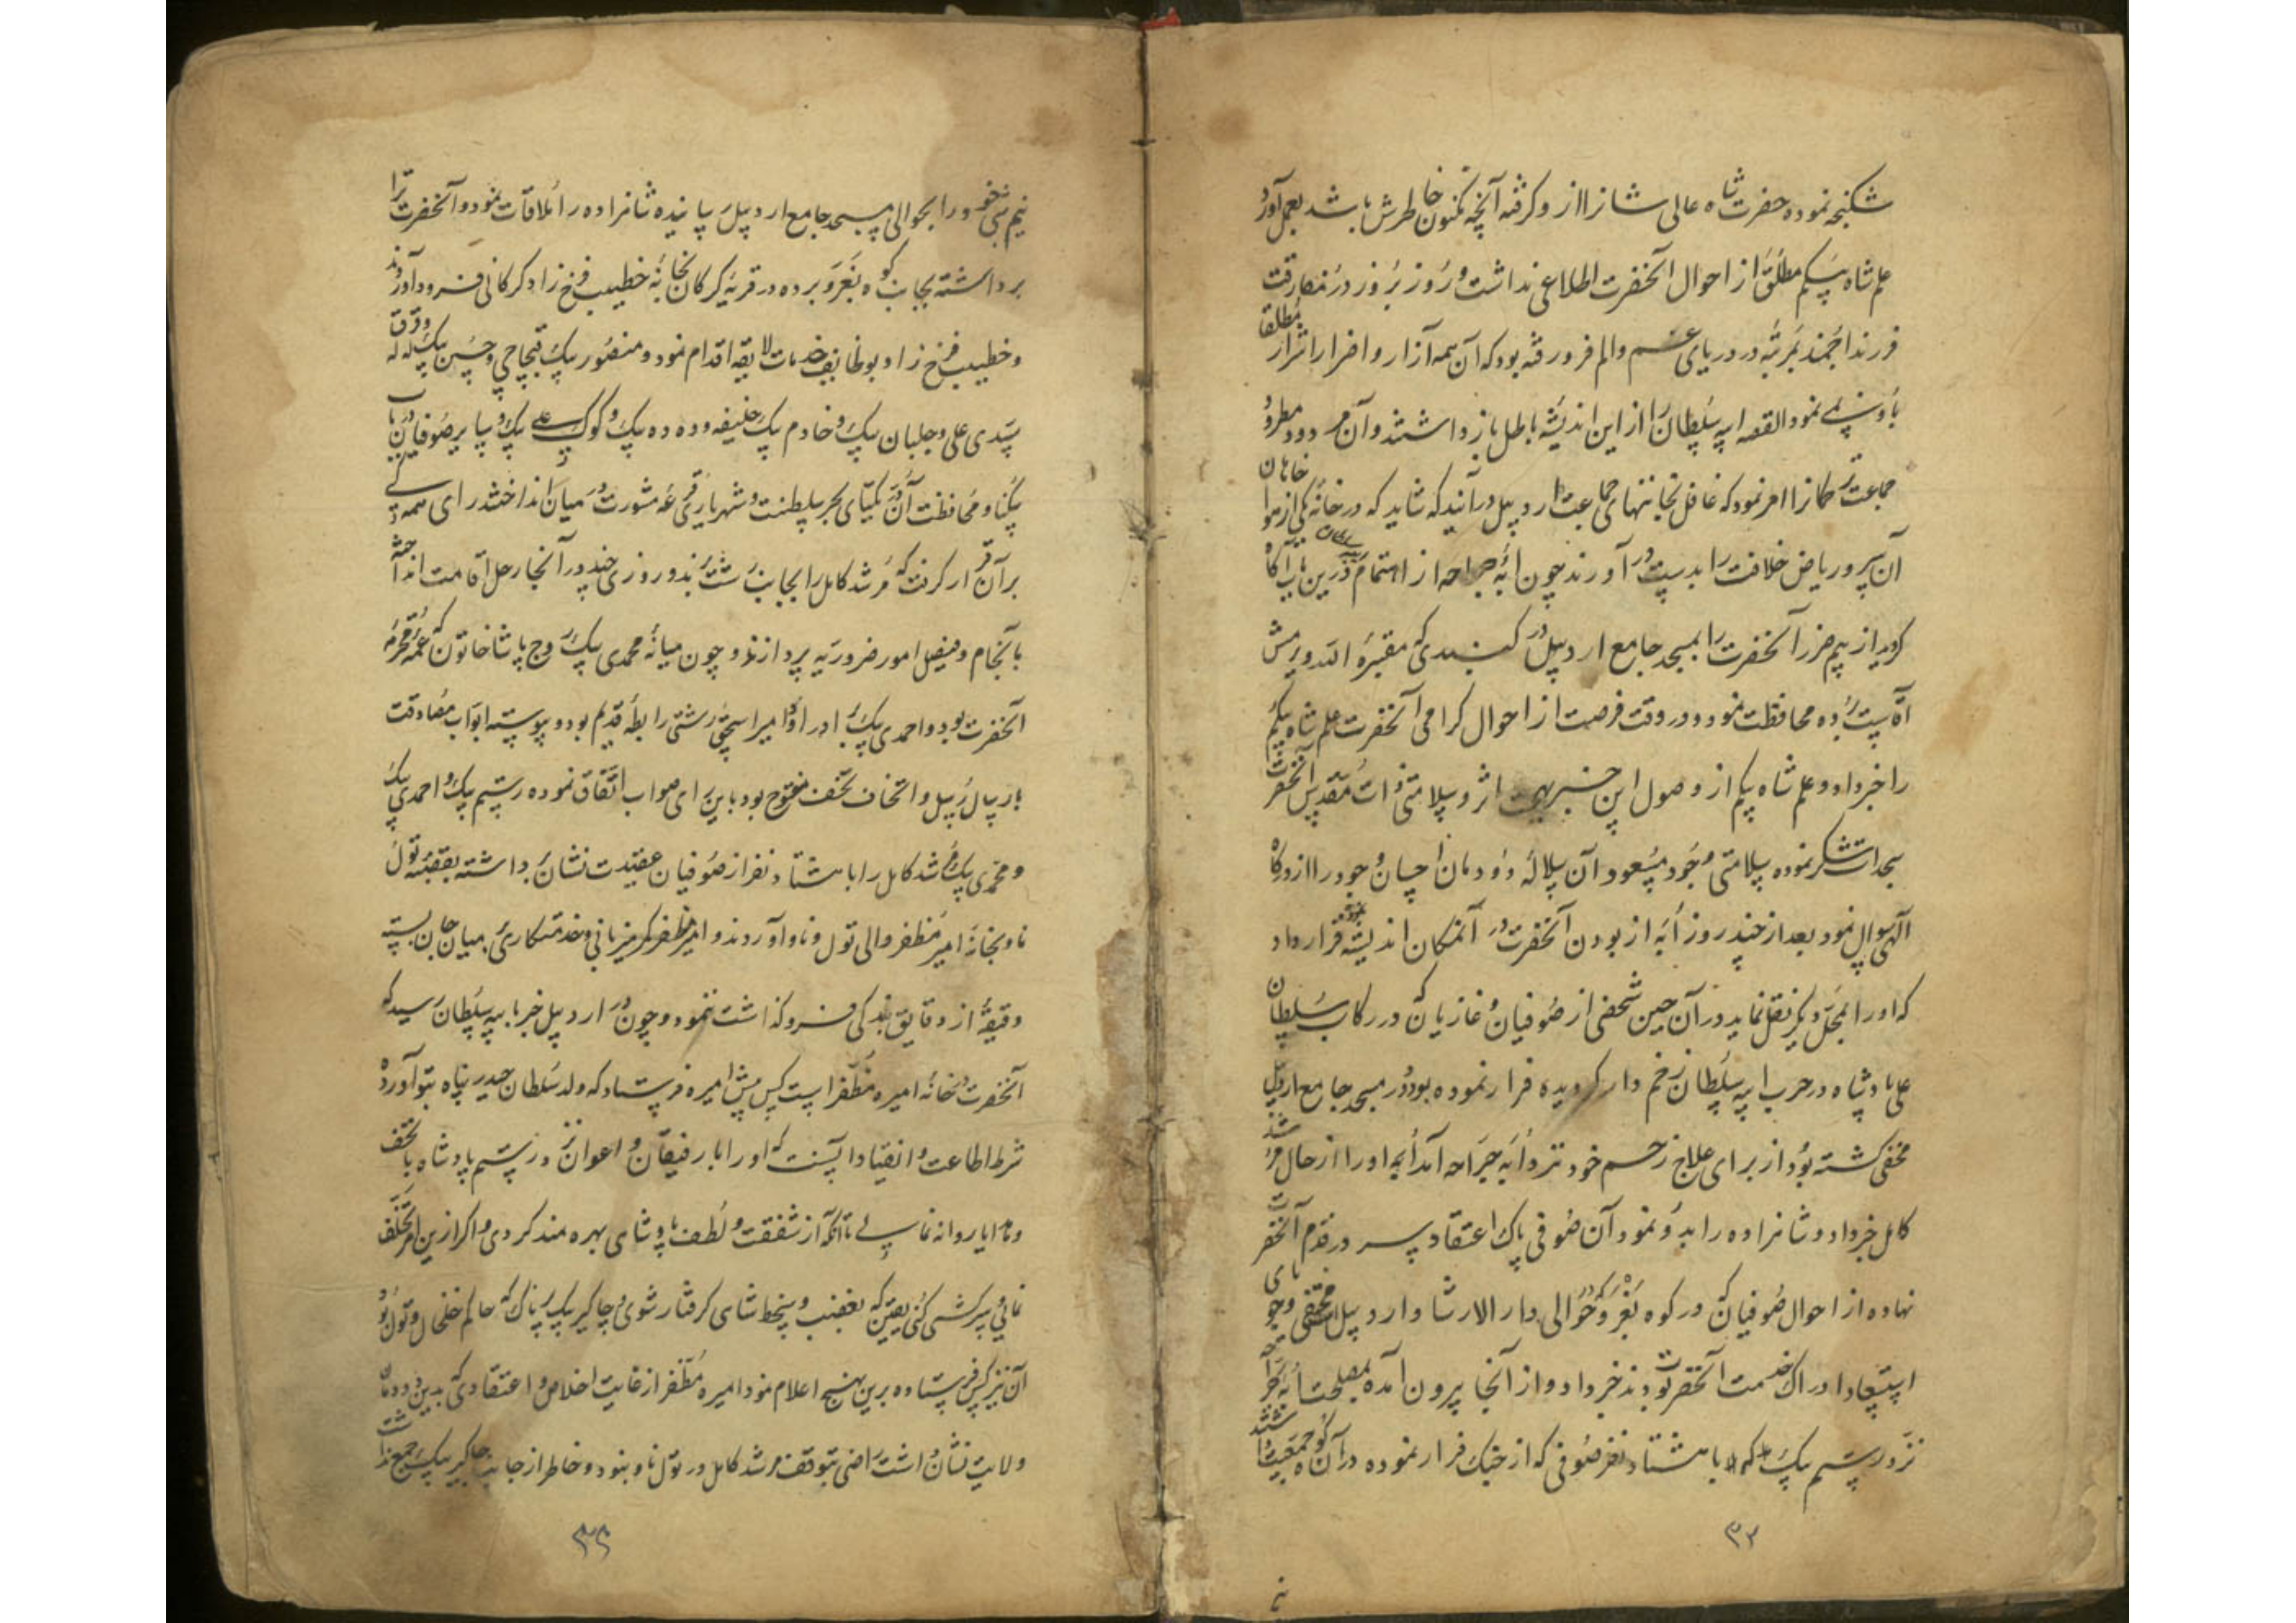 شکنجه نموده حضرت شاه عالی شانرا ازو گرفته آنچه مکنون خاطرش باشد بعمل آورد
علمشاه بیکم مطلق از احوال آنحضرت اطلاعی نداشت و روز بروز در مفارقت
فرزند ارجمند بمرتبه در دریای غم و الم فرو رفته بود که آن همه آزار و اضرار اشرار مطلقا
باو نمود القصه ایبه سلطان را از این اندیشه باطل باز داشتند و آن مردود مطرود
جماعت ترکمانرا امر نمود که غافل بخانهای جماعت اردبیل درآیند که شاید که در خانه یکی از هواخاهان
آن سرو ریاض خلافت را بدست در آورند چون ابه جراحه از اهتمام درین باب آکاه
کردید از بیم ضرر آنحضرت را بمسجد جامع اردبیل در کنبدی که مقبره
برده محافظت نمود و در وقت فرصت از احوال کرامی آنحضرت علمشاه بیکم
را خبر داد و علمشاه بیکم از وصول این خبر بهجت اثر و سلامتی ذات مقدس آنحضرت
سجدات شکر نموده سلامتی وجود مسعود آن سلاله دودمان احسان و جود را از درکاه
آلهی سوال نمود بعد از چند روز ابه از بودن آنحضرت در آنمکان اندیشه نموده قرار داد
که او را بمحل دیکر نقل نماید در آن حین شخصی از صوفیان و غازیان که در رکاب سلطان
علی پادشاه در حرب ایبه سلطان زخم دار کردیده فرار نموده بود و در مسجد جامع اردبیل
مخفی کشته بود از برای علاج زخم خود نزد ابه جراحه آمد ابه او را از حال مرشد
کامل خبر داد و شاهزاده را بدو نمود آن صوفی پاک اعتقاد سر در قدم آنحضرت
نهاده از احوال صوفیان که در کوه بغرو که در حوالی دار الارشاد اردبیل مختفی و جویای
استسعاد ادراک خدمت آنحضرت بودند خبر داد و از آنجا بیرون آمده بمصلحت ابه جراحه
نزد رستم بیک که با هشتاد نفر صوفی که از جنک فرار نموده در آن کوه جمعیت داشتند
۳۲
نیم شبی خود را بحوالی مسجد جامع اردبیل رسانیده شاهزاده را ملاقات نمود و آنحضرت را
برداشته بجانب کوه بغرو برده در قریه کرکان بخانه خطیب فرخ زاد کرکانی فرود آوردند
و خطیب فرخ زاد بوظایف خدمات لایقه اقدام نمود و منصور بیک قبچاقی و حسین بیک لله
سیدی علی و جلبان بیک و خادم بیک خلیفه و دده بیک و کوک علی بیک و سایر صوفیان در باب
و محافظت آن در یکتای بحر سلطنت و شهریاری قرعه مشورت در میان انداختند رای همه
بر آن قرار کرفت که مرشد کامل را بجانب رشت برند و روزی چند در آنجا رحل اقامت انداخته
بانجام و فیصل امور ضروریه پردازند و چون میانه محمدی بیک زوج پاشا خاتون که عمه محترمه
آنحضرت بود و احمدی بیک برادر او با امیر اسحق رشتی رابطه قدیم بود و پیوسته ابواب مصادقت
بارسال رسل و اتحاف تحف مفتوح بود باین رای صواب اتفاق نموده رستم بیک و احمدی بیک
و محمدی بیک مرشد کامل را با هشتاد نفر از صوفیان عقیدت نشان برداشته بقصبه تول
ناو بخانه امیر مظفر والی تول و ناو آوردند و امیر مظفر کمر میزبانی و خدمتکاری بر میان جان بسته
دقیقه از دقایق بندکی فرو کذاشت ننمود و چون در اردبیل خبر بایبه سلطان رسید که
آنحضرت در خانه امیره مظفر است کس پیش امیره فرستاد که ولد سلطان حیدر پناه بتو آورده
شرط اطاعت و انقیاد آنست که او را با رفیقان و اعوان نزد رستم پادشاه با تحف
و هدایا روانه نمایی تا آنکه از شفقت و لطف پادشاهی بهره مند کردی و اکر ازین امر تخلف
نمائی و سرکشی کنی یقین که بغضب و سخط شاهی کرفتار شوی و جاکیر بیک پرناک که حاکم خلخال و تول بود
آن نیز کس فرستاده برین نهج اعلام نمود امیره مظفر از غایت اخلاص و اعتقادی که بدین دودمان
ولایت نشان داشت راضی بتوقف مرشد کامل در تول ناو نبود و خاطر از جانب جاکیر بیک جمع نداشت